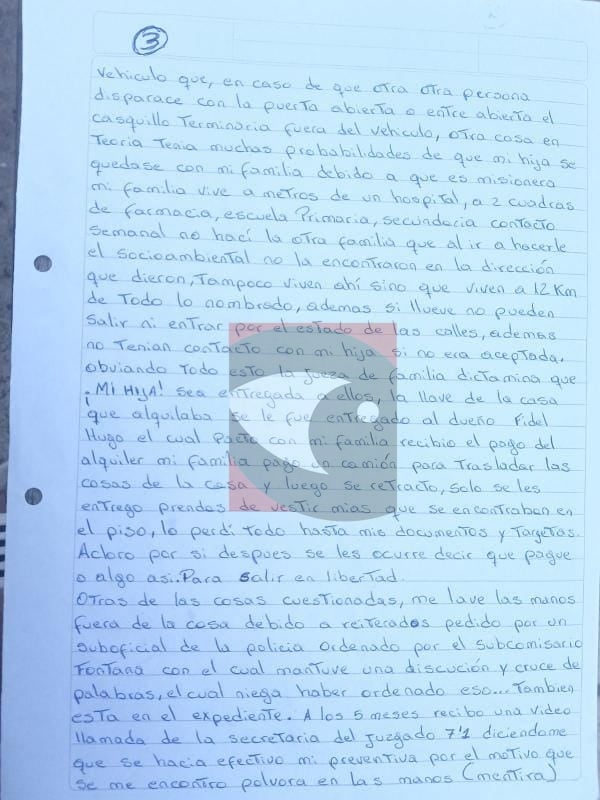 3
vehiculo que, en caso de que otra otra persona
disparace con la puerta abierta o entre abierta el
casquillo Terminaria fuera del vehiculo, otra cosa en
Teoria Tenia muchas probabilidades de que mi hija se
quedase con mi familia debido a que es misionera
mi familia vive a metros de un hospital, a 2 cuadras
de farmacia, escuela Primaria, secundaria contacto
Semanal no hací la otra familia que al ir a hacerle
el socioambiental no la encontraron en la dirección
que dieron, Tampoco viven ahí sino que viven a 12 Km
de Todo lo nombrado, ademas si llueve no pueden
Salir ni entrar por el estado de las calles, ademas
no Tenian contacto con mi hija si no era aceptada.
obviando Todo esto la jueza de familia dictamina que
¡MI HIJA! sea entregada a ellos, la llave de la casa
que alquilaba se le fue entregado al dueño Fidel
Hugo el cual Pacto con mi familia recibio el pago del
alquiler mi familia pago un camión para Trasladar las
cosas de la casa y luego se retracto, solo se les
entrego prendas de vestir mias que se encontraban en
el piso, lo perdí todo hasta mis documentos y Targetas.
Acloro por si despues se les ocurre decir que pague
o algo asi. Para salir en libertad.
Otras de las cosas cuestionadas, me lave las manos
fuera de la casa debido a reiterados pedido por un
suboficial de la policia ordenado por el subcomisario
Fontana con el cual mantuve una discución y cruce de
palabras, el cual niega haber ordenado eso... Tambien
esta en el expediente. A los 5 meses recibo una video
llamada de la secretaria del juzgado 7'1 diciendome
que se hacia efectivo mi preventiva por el motivo que
se me encontro polvora en las manos (mentira)